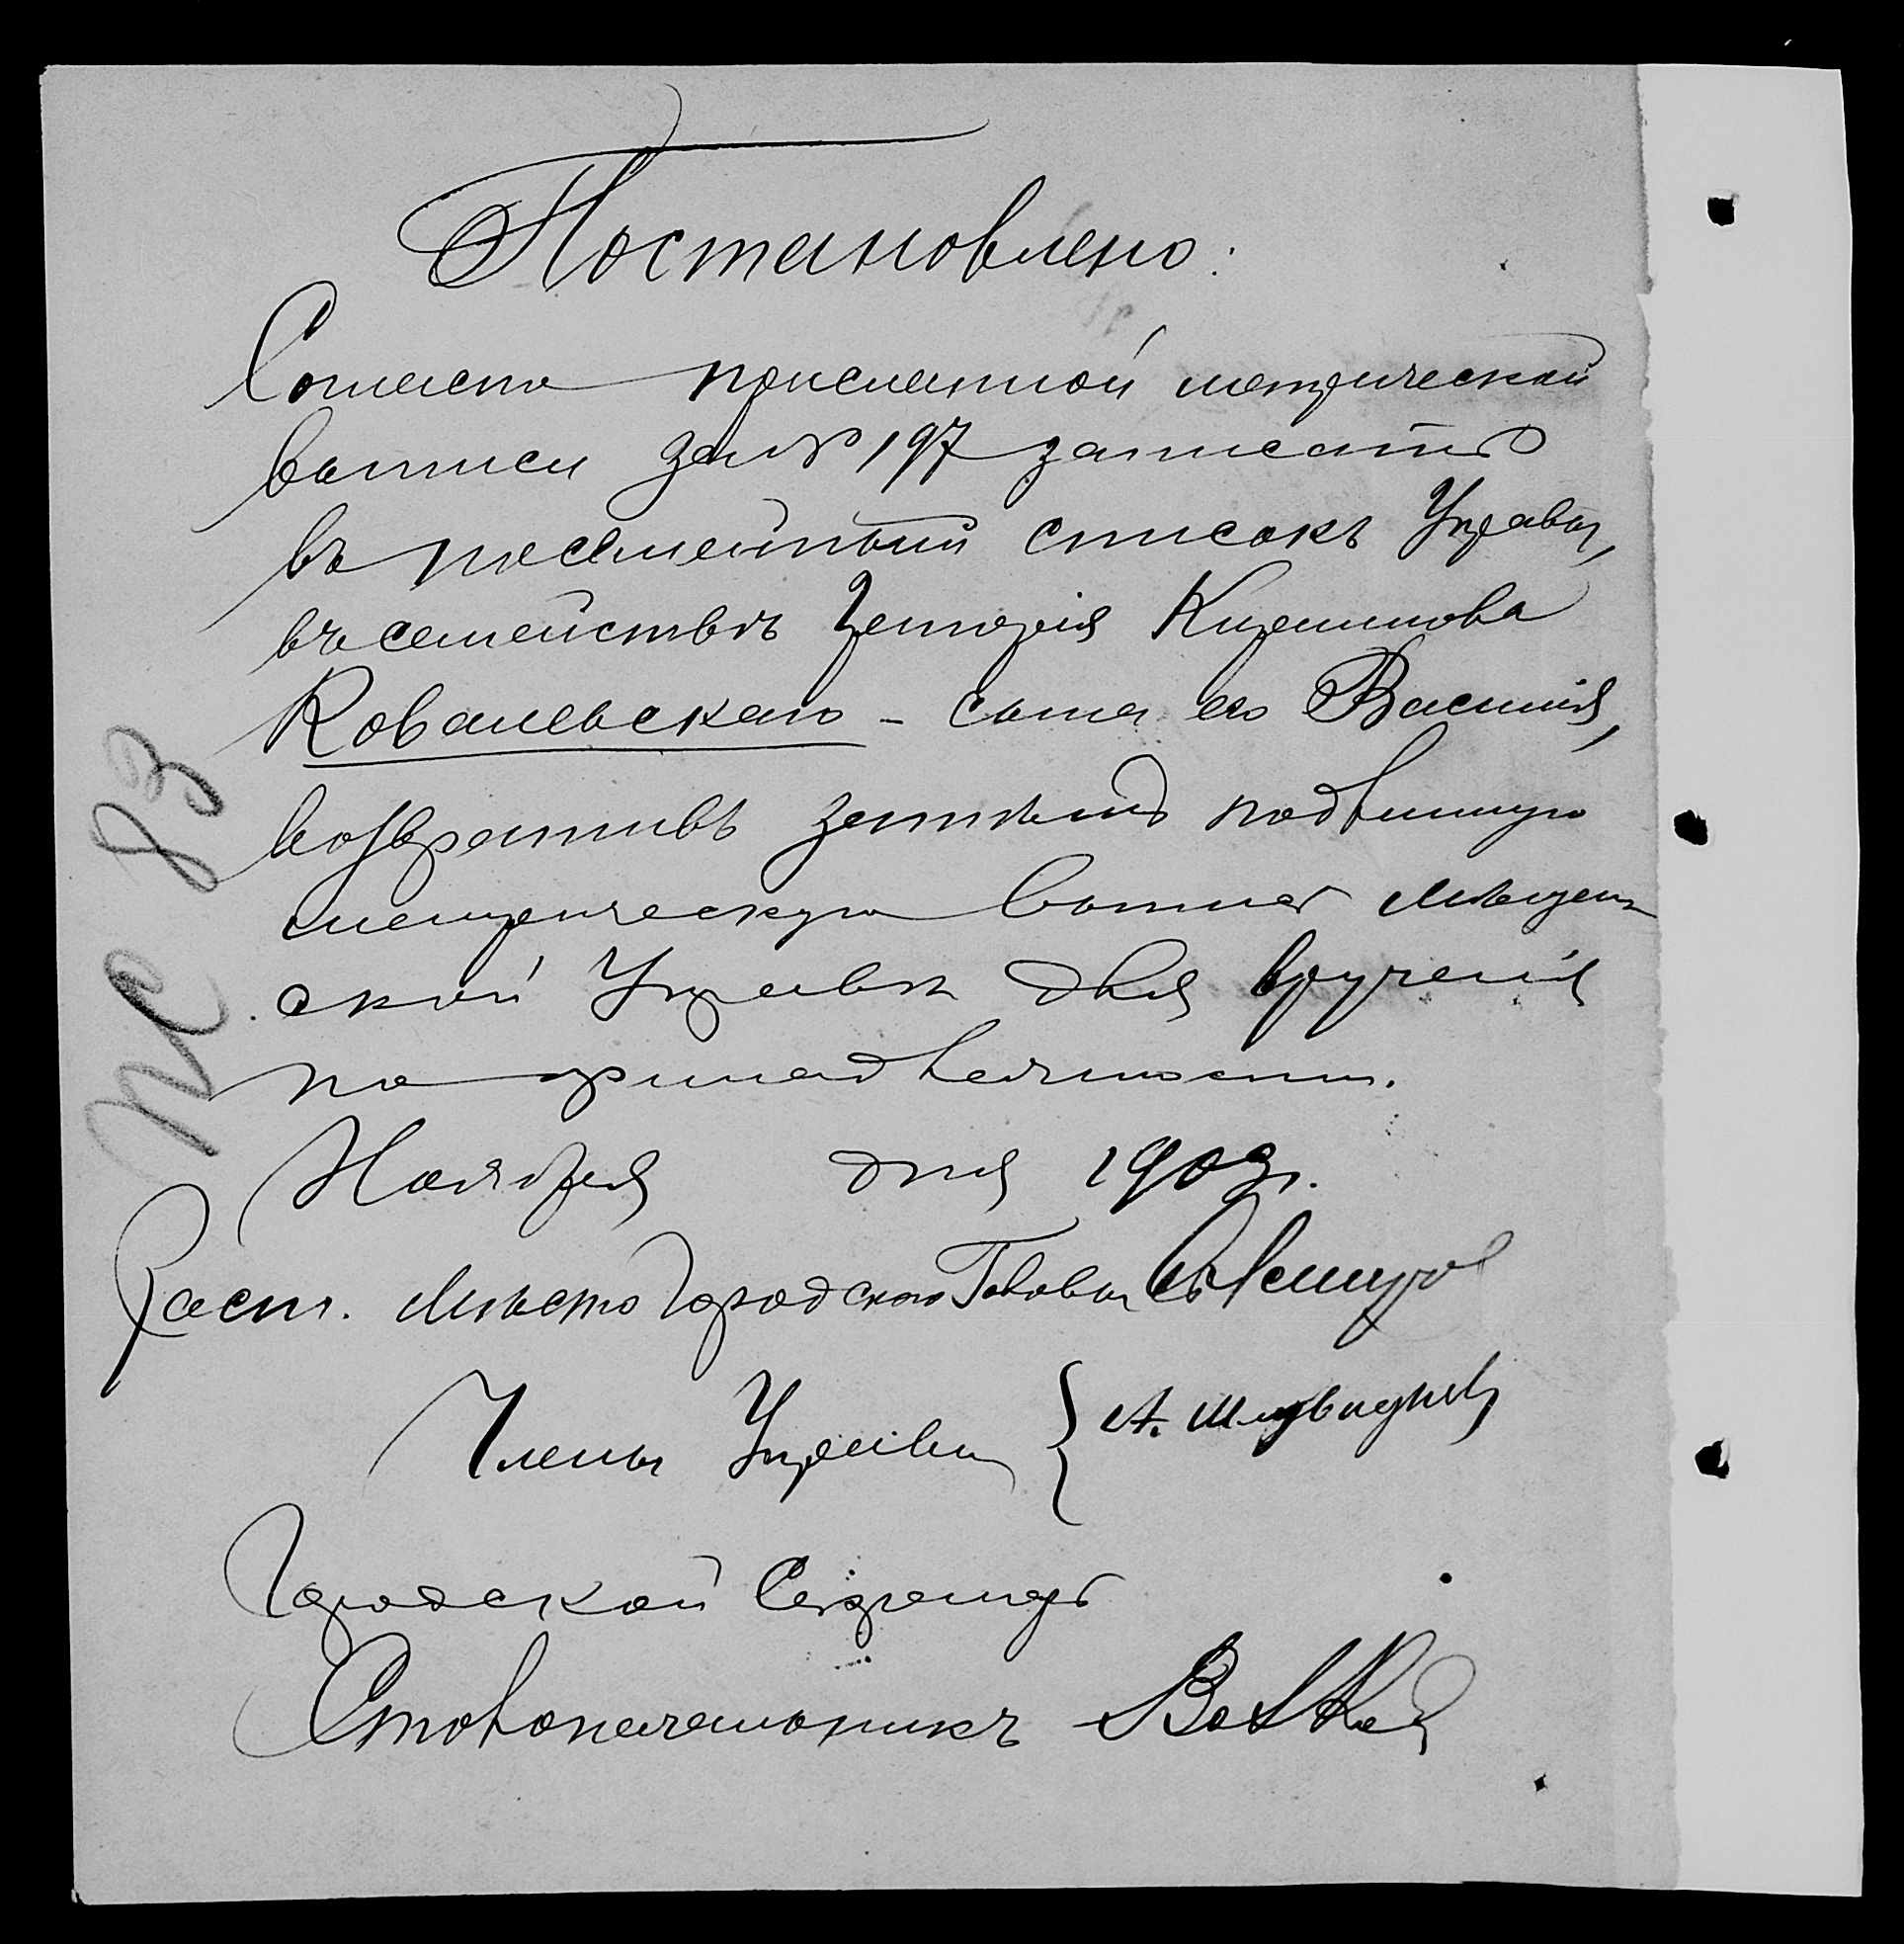 Постановлено:
Согласно присланной метрической
выписи за № 197 записать
въ посемейный списокъ Управы,
въ семействѣ Григорія
Ковалевскаго - сына его Василія,
возвративъ затѣмъ подлинную
метрическую выпись Мѣщан-
ской Управѣ для врученія
по принадлежности.
Ноября дня 1903г.
Заст. Мѣсто Городского Головы
Члены Управы { А.
Городской Секретарь
Столоначальникъ
83